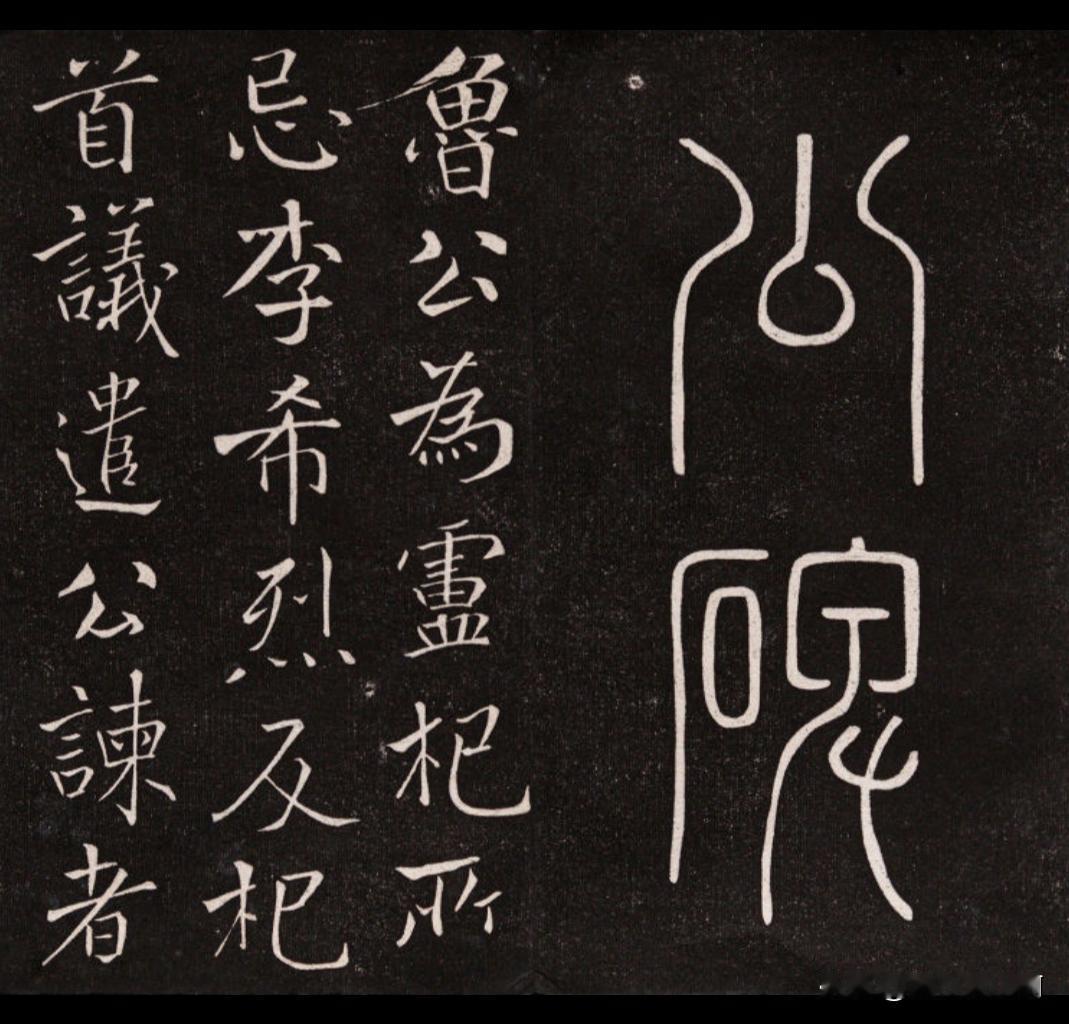 公碑
魯公為盧杞所
忌李希烈反杞
首議遣公諫者